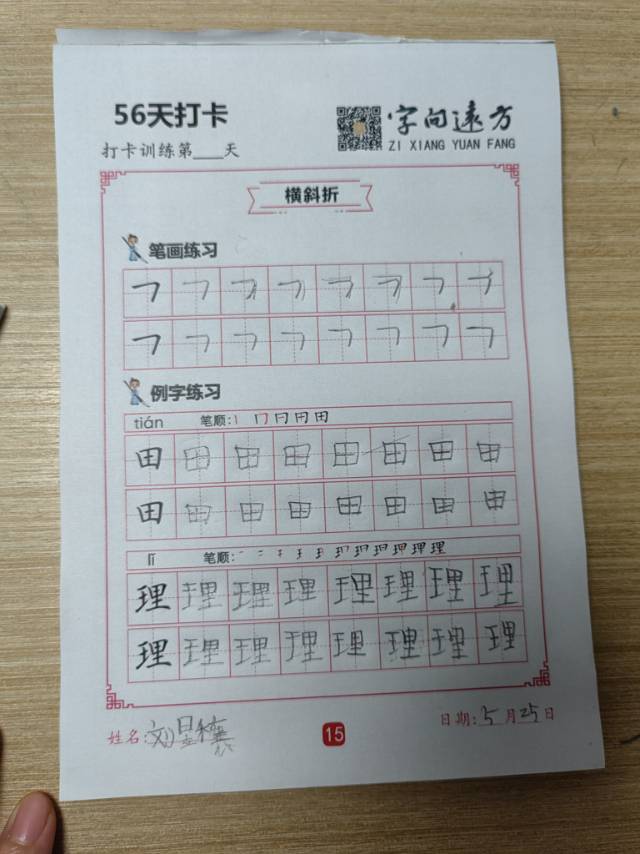 56天打卡
字向远方
ZI XIANG YUAN FANG
打卡训练第___天
横斜折
笔画练习
㇇ ㇇ ㇇ ㇇ ㇇ ㇇ ㇇ ㇇
㇇ ㇇ ㇇ ㇇ ㇇ ㇇ ㇇ ㇇
例字练习
tián 笔顺:丨 冂 日 田 田
田 田 田 田 田 田 田 田
田 田 田 田 田 田 田 田
lǐ 笔顺:
理 理 理 理 理 理 理 理
理 理 理 理 理 理 理 理
姓名:刘星
15
日期:5月25日